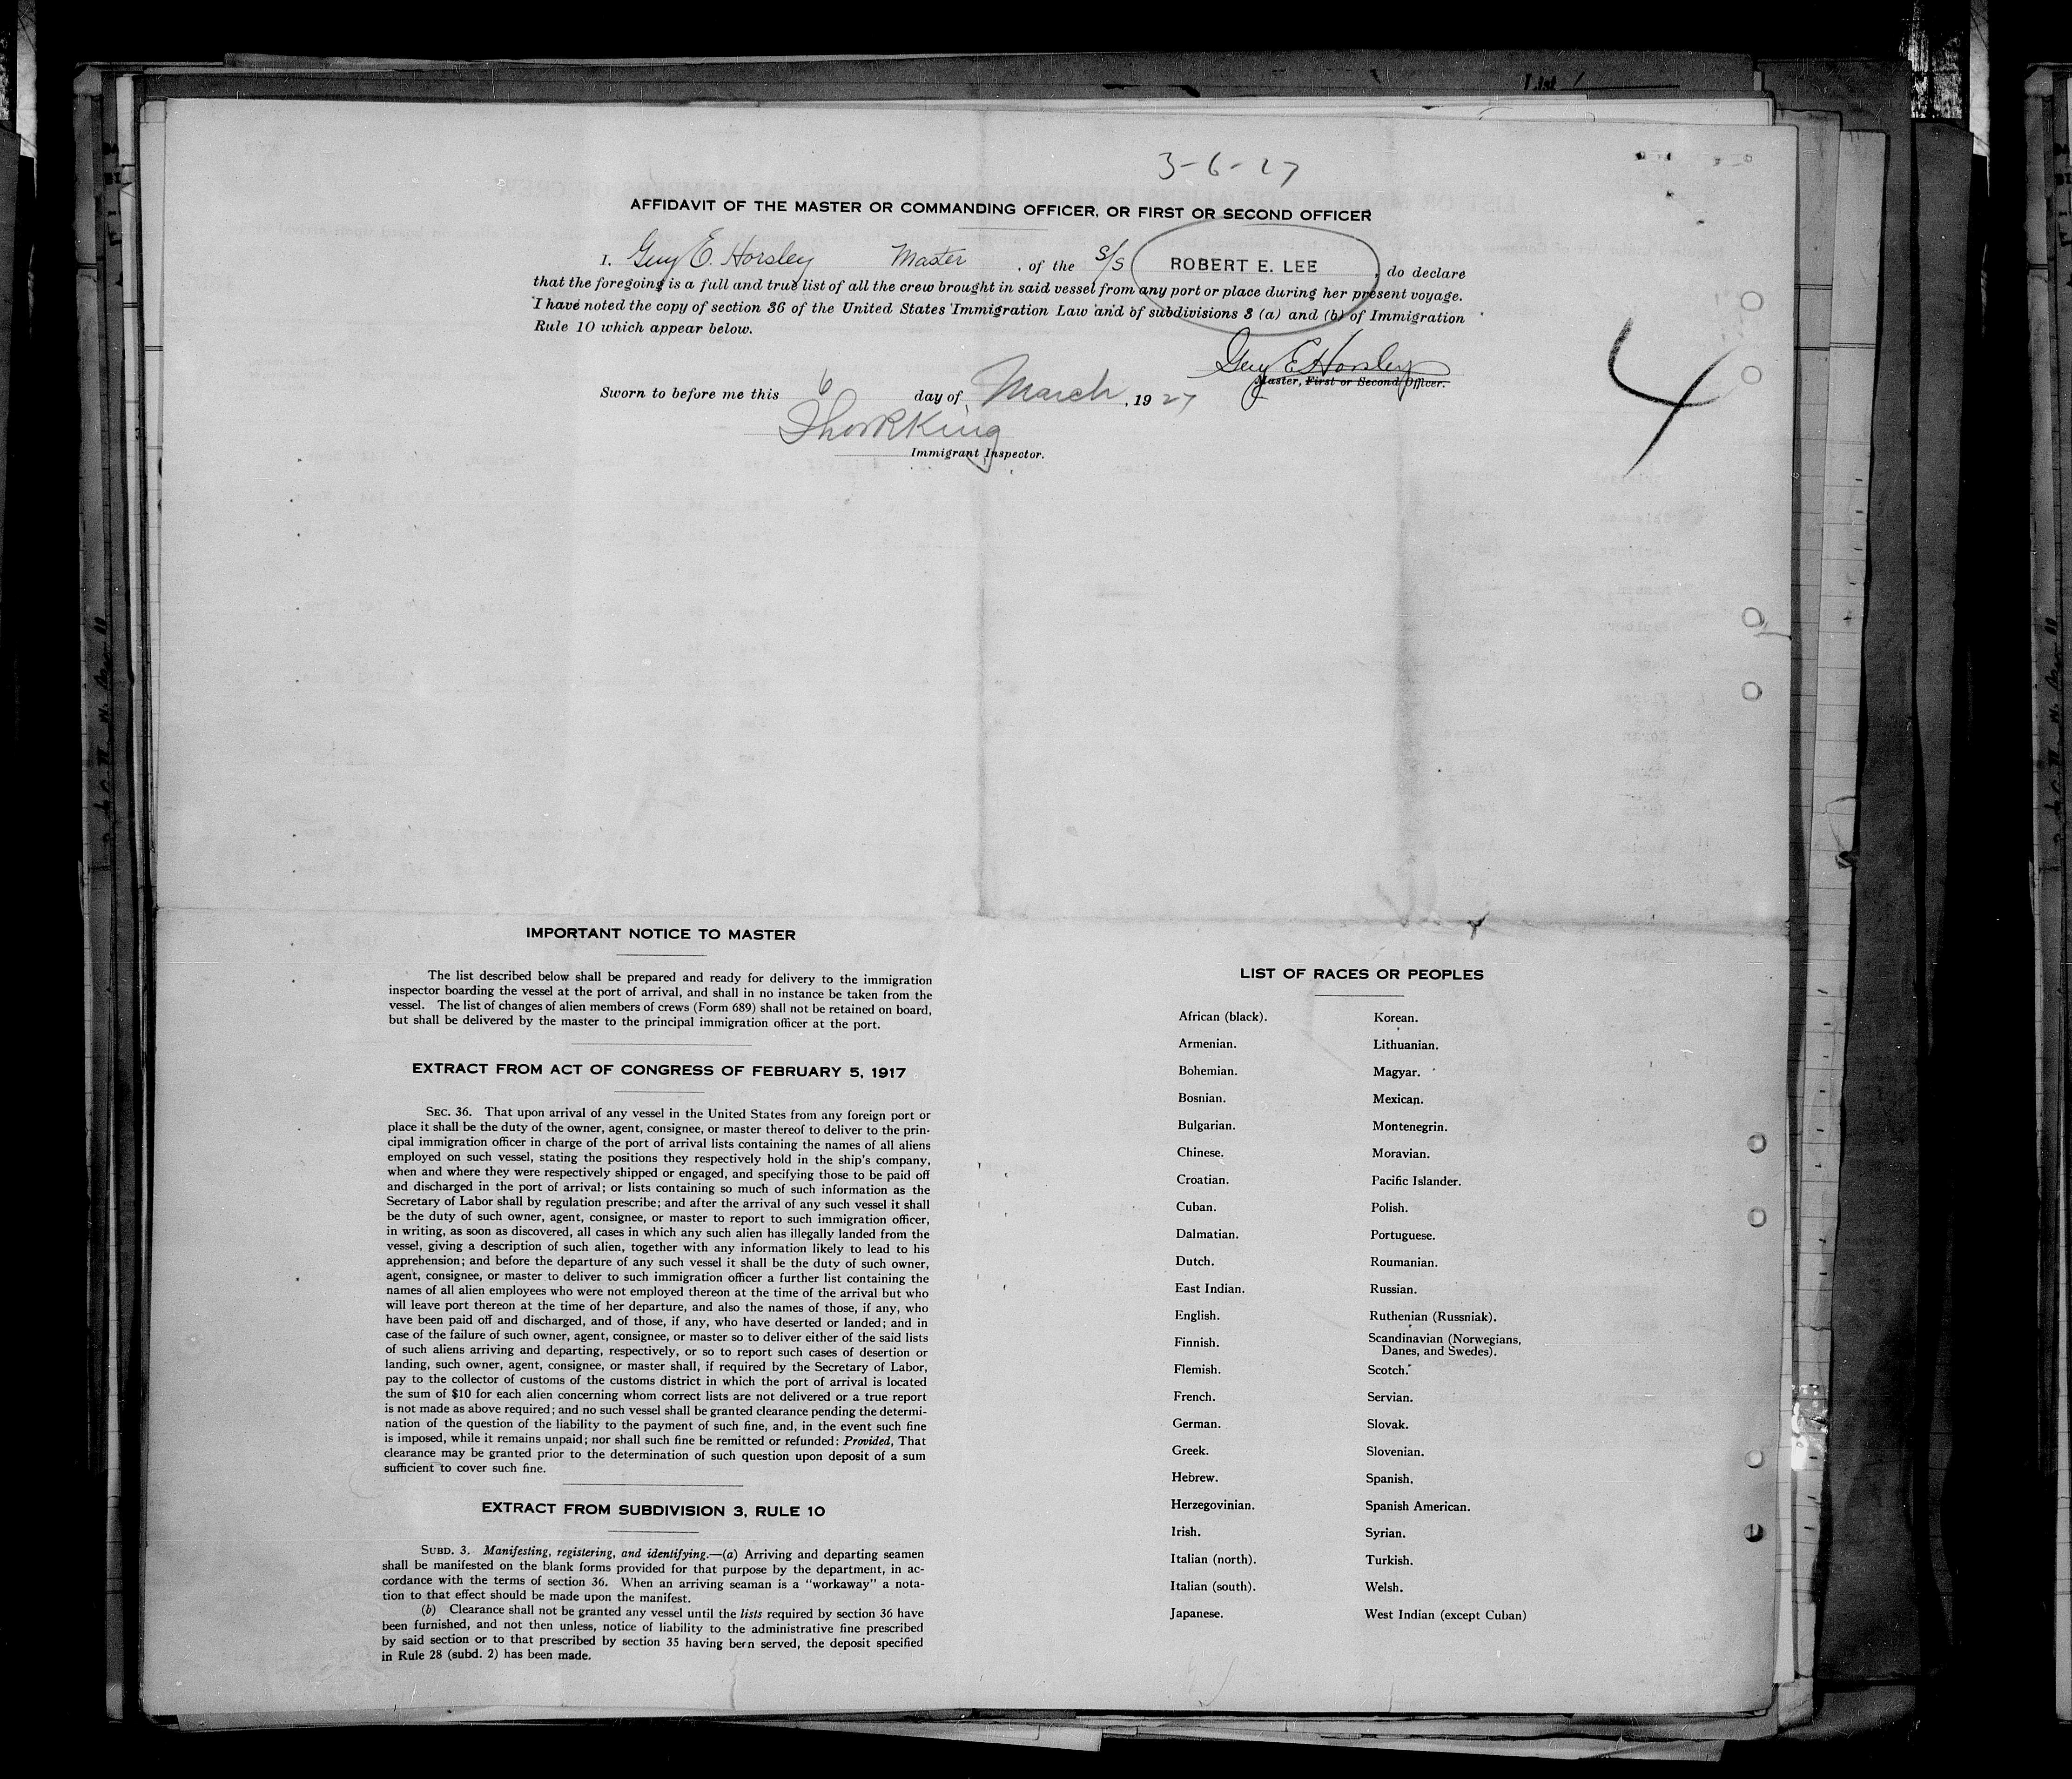 List 1
3-6-27
AFFIDAVIT OF THE MASTER OR COMMANDING OFFICER, OR FIRST OR SECOND OFFICER
I, Guy E. Horsley Master, of the S/S ROBERT E. LEE, do declare
that the foregoing is a full and true list of all the crew brought in said vessel from any port or place during her present voyage.
I have noted the copy of section 36 of the United States Immigration Law and of subdivisions 3 (a) and (b) of Immigration
Rule 10 which appear below.
Guy E Horsley
Master, First or Second Officer.
4
Sworn to before me this 6 day of March, 1927
King
Immigrant Inspector.
IMPORTANT NOTICE TO MASTER
The list described below shall be prepared and ready for delivery to the immigration
inspector boarding the vessel at the port of arrival, and shall in no instance be taken from the
vessel. The list of changes of alien members of crews (Form 689) shall not be retained on board,
but shall be delivered by the master to the principal immigration officer at the port.
EXTRACT FROM ACT OF CONGRESS OF FEBRUARY 5, 1917
SEC. 36. That upon arrival of any vessel in the United States from any foreign port or
place it shall be the duty of the owner, agent, consignee, or master thereof to deliver to the prin-
cipal immigration officer in charge of the port of arrival lists containing the names of all aliens
employed on such vessel, stating the positions they respectively hold in the ship's company,
when and where they were respectively shipped or engaged, and specifying those to be paid off
and discharged in the port of arrival; or lists containing so much of such information as the
Secretary of Labor shall by regulation prescribe; and after the arrival of any such vessel it shall
be the duty of such owner, agent, consignee, or master to report to such immigration officer,
in writing, as soon as discovered, all cases in which any such alien has illegally landed from the
vessel, giving a description of such alien, together with any information likely to lead to his
apprehension; and before the departure of any such vessel it shall be the duty of such owner,
agent, consignee, or master to deliver to such immigration officer a further list containing the
names of all alien employees who were not employed thereon at the time of the arrival but who
will leave port thereon at the time of her departure, and also the names of those, if any, who
have been paid off and discharged, and of those, if any, who have deserted or landed; and in
case of the failure of such owner, agent, consignee, or master so to deliver either of the said lists
of such aliens arriving and departing, respectively, or so to report such cases of desertion or
landing, such owner, agent, consignee, or master shall, if required by the Secretary of Labor,
pay to the collector of customs of the customs district in which the port of arrival is located
the sum of $10 for each alien concerning whom correct lists are not delivered or a true report
is not made as above required; and no such vessel shall be granted clearance pending the determi-
nation of the question of the liability to the payment of such fine, and, in the event such fine
is imposed, while it remains unpaid; nor shall such fine be remitted or refunded: Provided, That
clearance may be granted prior to the determination of such question upon deposit of a sum
sufficient to cover such fine.
EXTRACT FROM SUBDIVISION 3, RULE 10
SUBD. 3. Manifesting, registering, and identifying.—(a) Arriving and departing seamen
shall be manifested on the blank forms provided for that purpose by the department, in ac-
cordance with the terms of section 36. When an arriving seaman is a "workaway" a nota-
tion to that effect should be made upon the manifest.
(b) Clearance shall not be granted any vessel until the lists required by section 36 have
been furnished, and not then unless, notice of liability to the administrative fine prescribed
by said section or to that prescribed by section 35 having been served, the deposit specified
in Rule 28 (subd. 2) has been made.
LIST OF RACES OR PEOPLES
African (black).
Armenian.
Bohemian.
Bosnian.
Bulgarian.
Chinese.
Croatian.
Cuban.
Dalmatian.
Dutch.
East Indian.
English.
Finnish.
Flemish.
French.
German.
Greek.
Hebrew.
Herzegovinian.
Irish.
Italian (north).
Italian (south).
Japanese.
Korean.
Lithuanian.
Magyar.
Mexican.
Montenegrin.
Moravian.
Pacific Islander.
Polish.
Portuguese.
Roumanian.
Russian.
Ruthenian (Russniak).
Scandinavian (Norwegians,
Danes, and Swedes).
Scotch.
Servian.
Slovak.
Slovenian.
Spanish.
Spanish American.
Syrian.
Turkish.
Welsh.
West Indian (except Cuban)